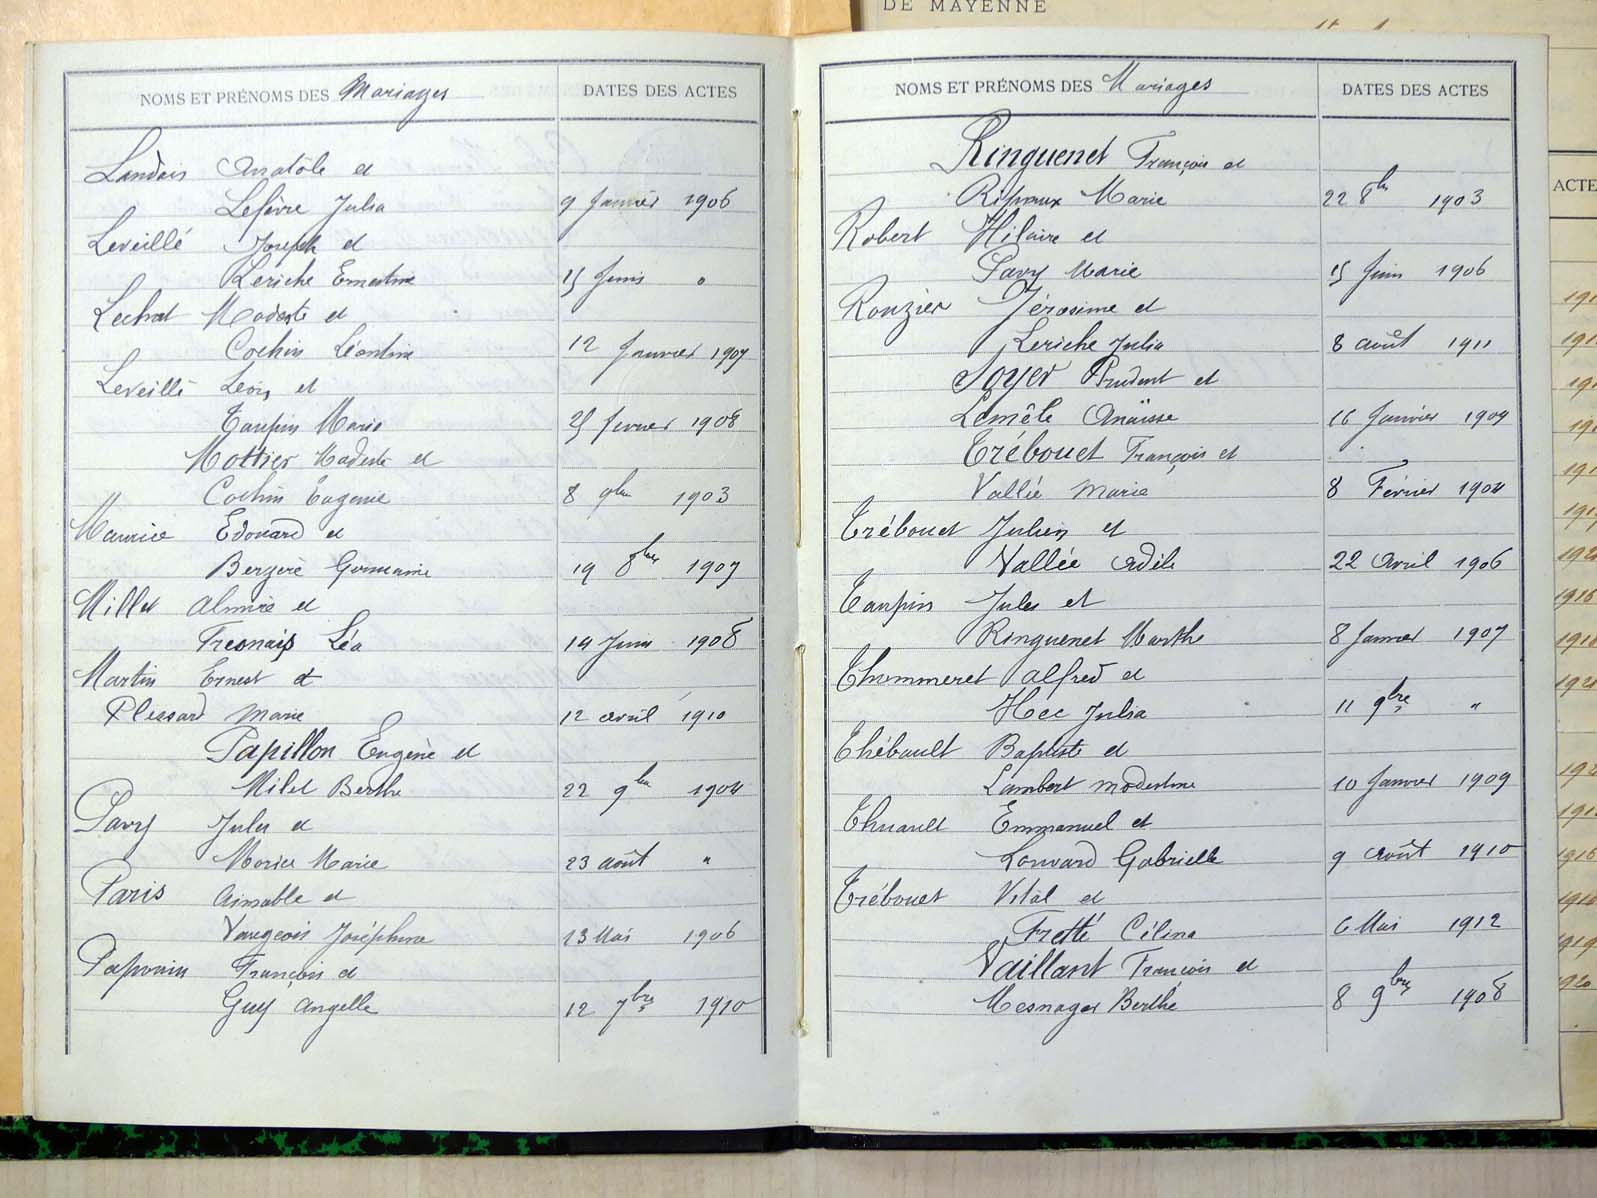 DE MAYENNE
NOMS ET PRÉNOMS DES Mariages DATES DES ACTES
Landais Anatôle et
Lefèvre Julia 9 Janvier 1906
Leveillé Joseph et
Leriche Ernestine 15 Juin "
Lechat Modeste et
Cochin Léontine 12 Janvier 1907
Leveillé Léon et
Taupin Marie 25 fevrier 1908
Mottier Modeste et
Cochin Eugenie 8 9bre 1903
Maurice Edouard et
Bergeré Germaine 19 8bre 1907
Millet Almire et
Fresnais Léa 14 Juin 1908
Martin Ernest et
Plessard Marie 12 avril 1910
Papillon Eugène et
Milet Berthe 22 9bre 1904
Pavy Jules et
Morice Marie 23 août "
Paris Aimable et
Vaugeois Joséphine 13 Mai 1906
Papouin François et
Guy Angelle 12 7bre 1910
NOMS ET PRÉNOMS DES Mariages DATES DES ACTES
Ringuenet François et
Marie 22 8bre 1903
Robert Hilaire et
Pavy Marie 15 Juin 1906
Rouzier Jérosime et
Leriche Julia 8 août 1911
Soyer Prudent et
Lemêle Anaïsse 16 Janvier 1904
Trébouet François et
Vallée Marie 8 Février 1904
Trébouet Julien et
Vallée Adèle 22 Avril 1906
Taupin Jules et
Ringuenet Marthe 8 Janvier 1907
Thommeret Alfred et
Hée Julia 11 9bre "
Thébault Baptiste et
Lambert Modestine 10 Janvier 1909
Thuault Emmanuel et
Louvard Gabrielle 9 Août 1910
Trébouet Vital et
Fretté Célina 6 Mai 1912
Vaillant François et
Mesnager Berthe 8 9bre 1908
ACTE